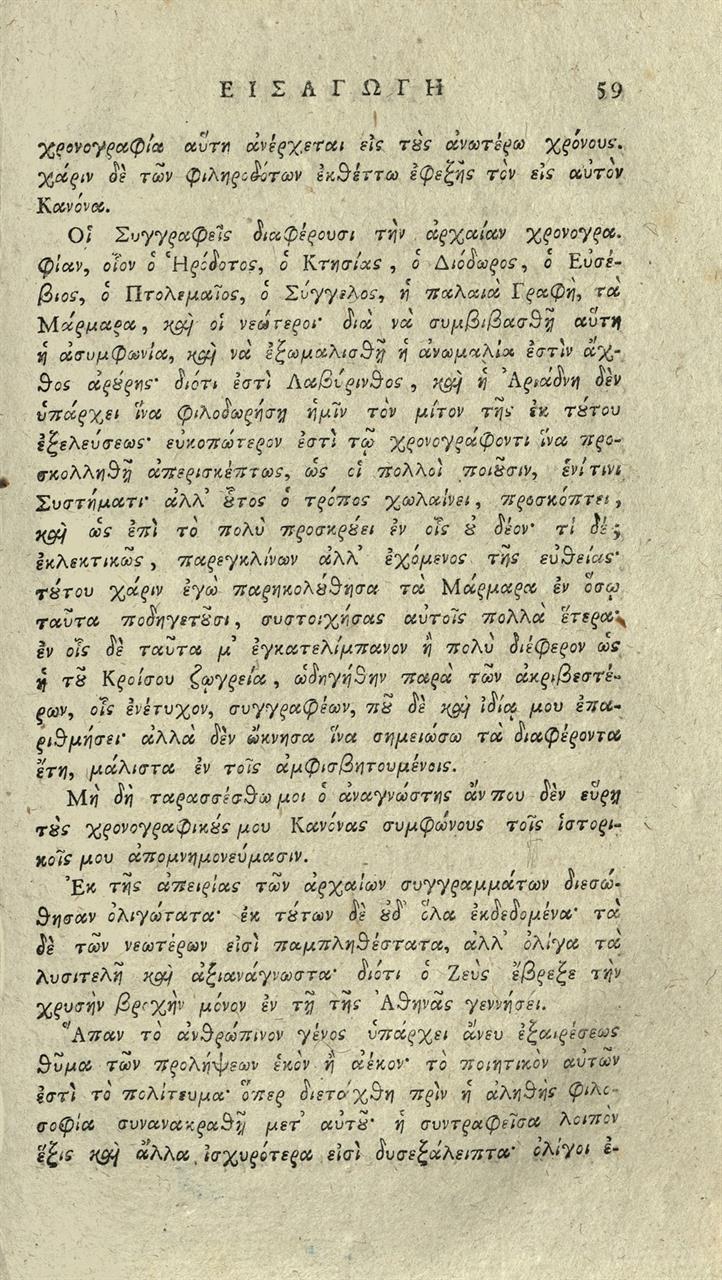 ΕΙΣΑΓΩΓΗ 59
χρονογραφία αὕτη ἀνέρχεται εἰς τοὺς ἀνωτέρω χρόνους.
χάριν δὲ τῶν φιληροδότων ἐκθέττω ἐφεξῆς τὸν εἰς αὐτὸν
Κανόνα.
Οἱ Συγγραφεῖς διαφέρουσι τὴν ἀρχαίαν χρονογρα.
φίαν, οἷον ὁ Ἡρόδοτος, ὁ Κτησίας, ὁ Διόδωρος, ὁ Εὐσέ-
βιος, ὁ Πτολεμαῖος, ὁ Σύγγελος, ἡ παλαιὰ Γραφὴ, τὰ
Μάρμαρα, καὶ οἱ νεώτεροι· διὰ νὰ συμβιβασθῇ αὕτη
ἡ ἀσυμφωνία, καὶ νὰ ἐξωμαλισθῇ ἡ ἀνωμαλία ἐστὶν ἄχ-
θος ἀρούρης· διότι ἐστὶ Λαβύρινθος, καὶ ἡ Ἀριάδνη δὲν
ὑπάρχει ἵνα φιλοδωρήσῃ ἡμῖν τὸν μίτον τῆς ἐκ τούτου
ἐξελεύσεως· εὐκοπώτερον ἐστὶ τῷ χρονογράφοντι ἵνα προ-
σκολληθῇ ἀπερισκέπτως, ὡς οἱ πολλοὶ ποιοῦσιν, ἑνί τινι
Συστήματι· ἀλλ' οὗτος ὁ τρόπος χωλαίνει, προσκόπτει,
καὶ ὡς ἐπὶ τὸ πολὺ προσκρούει ἐν οἷς οὐ δέον· τί δέ;
ἐκλεκτικῶς, παρεγκλίνων ἀλλ' ἐχόμενος τῆς εὐθείας·
τούτου χάριν ἐγὼ παρηκολούθησα τὰ Μάρμαρα ἐν ὅσῳ
ταῦτα ποδηγετοῦσι, συστοιχήσας αὐτοῖς πολλὰ ἕτερα·
ἐν οἷς δὲ ταῦτα μ' ἐγκατελίμπανον ἢ πολὺ διέφερον ὡς
ἡ τοῦ Κροίσου ζωγρεία, ὡδηγήθην παρὰ τῶν ἀκριβεστέ-
ρων, οἷς ἐνέτυχον, συγγραφέων, ποῦ δὲ καὶ ἰδίᾳ μου ἐπα-
ριθμήσει· ἀλλὰ δὲν ὤκνησα ἵνα σημειώσω τὰ διαφέροντα
ἔτη, μάλιστα ἐν τοῖς ἀμφισβητουμένοις.
Μὴ δὴ ταρασσέσθω μοι ὁ ἀναγνώστης ἄν που δὲν εὕρῃ
τοὺς χρονογραφικούς μου Κανόνας συμφώνους τοῖς ἱστορι-
κοῖς μου ἀπομνημονεύμασιν.
Ἐκ τῆς ἀπειρίας τῶν ἀρχαίων συγγραμμάτων διεσώ-
θησαν ὀλιγώτατα· ἐκ τούτων δὲ οὐδ' ὅλα ἐκδεδομένα· τὰ
δὲ τῶν νεωτέρων εἰσὶ παμπληθέστατα, ἀλλ' ὀλίγα τὰ
λυσιτελῆ καὶ ἀξιανάγνωστα· διότι ὁ Ζεὺς ἔβρεξε τὴν
χρυσὴν βροχὴν μόνον ἐν τῇ τῆς Ἀθηνᾶς γεννήσει.
Ἅπαν τὸ ἀνθρώπινον γένος ὑπάρχει ἄνευ ἐξαιρέσεως
θῦμα τῶν προλήψεων ἑκὸν ἢ ἀέκον· τὸ ποιητικὸν αὐτῶν
ἐστὶ τὸ πολίτευμα· ὅπερ διετάχθη πρὶν ἡ ἀληθὴς φιλο-
σοφία συνανακραθῇ μετ' αὐτοῦ· ἡ συντραφεῖσα λοιπὸν
ἕξις καὶ ἄλλα ἰσχυρότερα εἰσὶ δυσεξάλειπτα· ὀλίγοι ἐ-